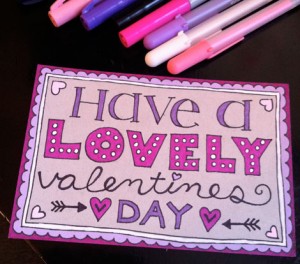 Have a
LOVELY
valentines
DAY